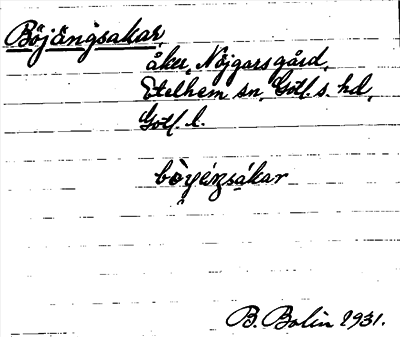 Böjängsakar,
åker, Nöjgarsgård,
Etelhem sn, Gotl. s. hd,
Gotl. l.
bòyéŋsákar
B. Bolin 1931.